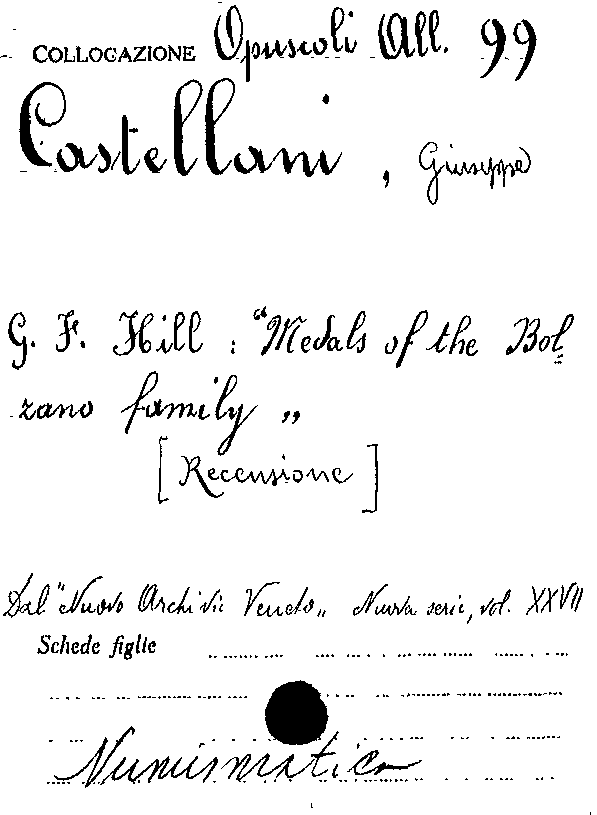 COLLOCAZIONE Opuscoli All. 99
Castellani, Giuseppe
G. F. Hill : "Medals of the Bol=
zano family"
[Recensione]
Dal "Nuovo Archivio Veneto" Nuova serie, vol. XXVII
Schede figlie
Numismatica